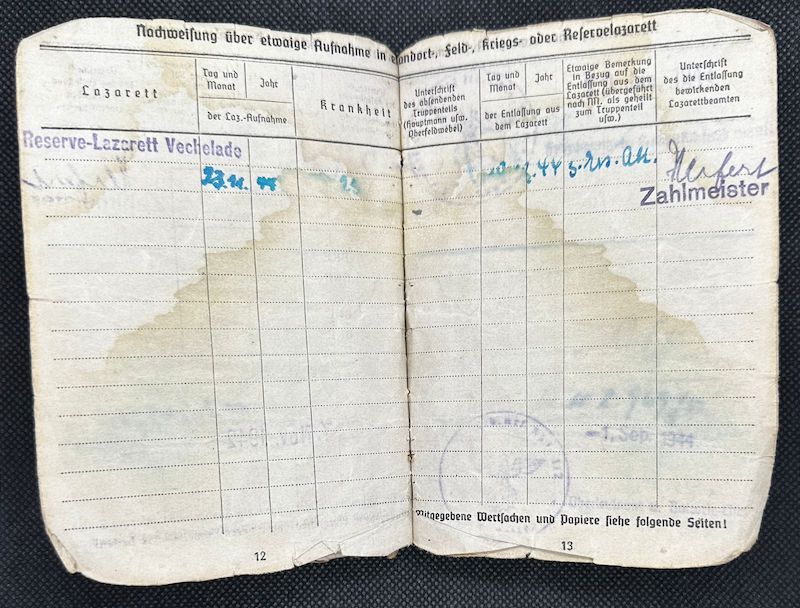 Nachweisung über etwaige Aufnahme in Standort-, Feld-, Kriegs- oder Reservelazarett
Lazarett
Tag und Monat
Jahr
der Laz.-Aufnahme
Krankheit
Unterschrift
des absendenden
Truppenteils
(Hauptmann usw.
Oberfeldwebel)
Tag und Monat
Jahr
der Entlassung aus
dem Lazarett
Etwaige Bemerkung
in Bezug auf die
Entlassung aus dem
Lazarett (übergeführt
nach M. als geheilt
zum Truppenteil
usw.)
Unterschrift
des die Entlassung
bewirkenden
Lazarettbeamten
Reserve-Lazarett Vechelade
23.11. 44
44 z. Ers. Abt.
Zahlmeister
-1. Sep. 1944
Mitgegebene Wertsachen und Papiere siehe folgende Seiten!
12
13